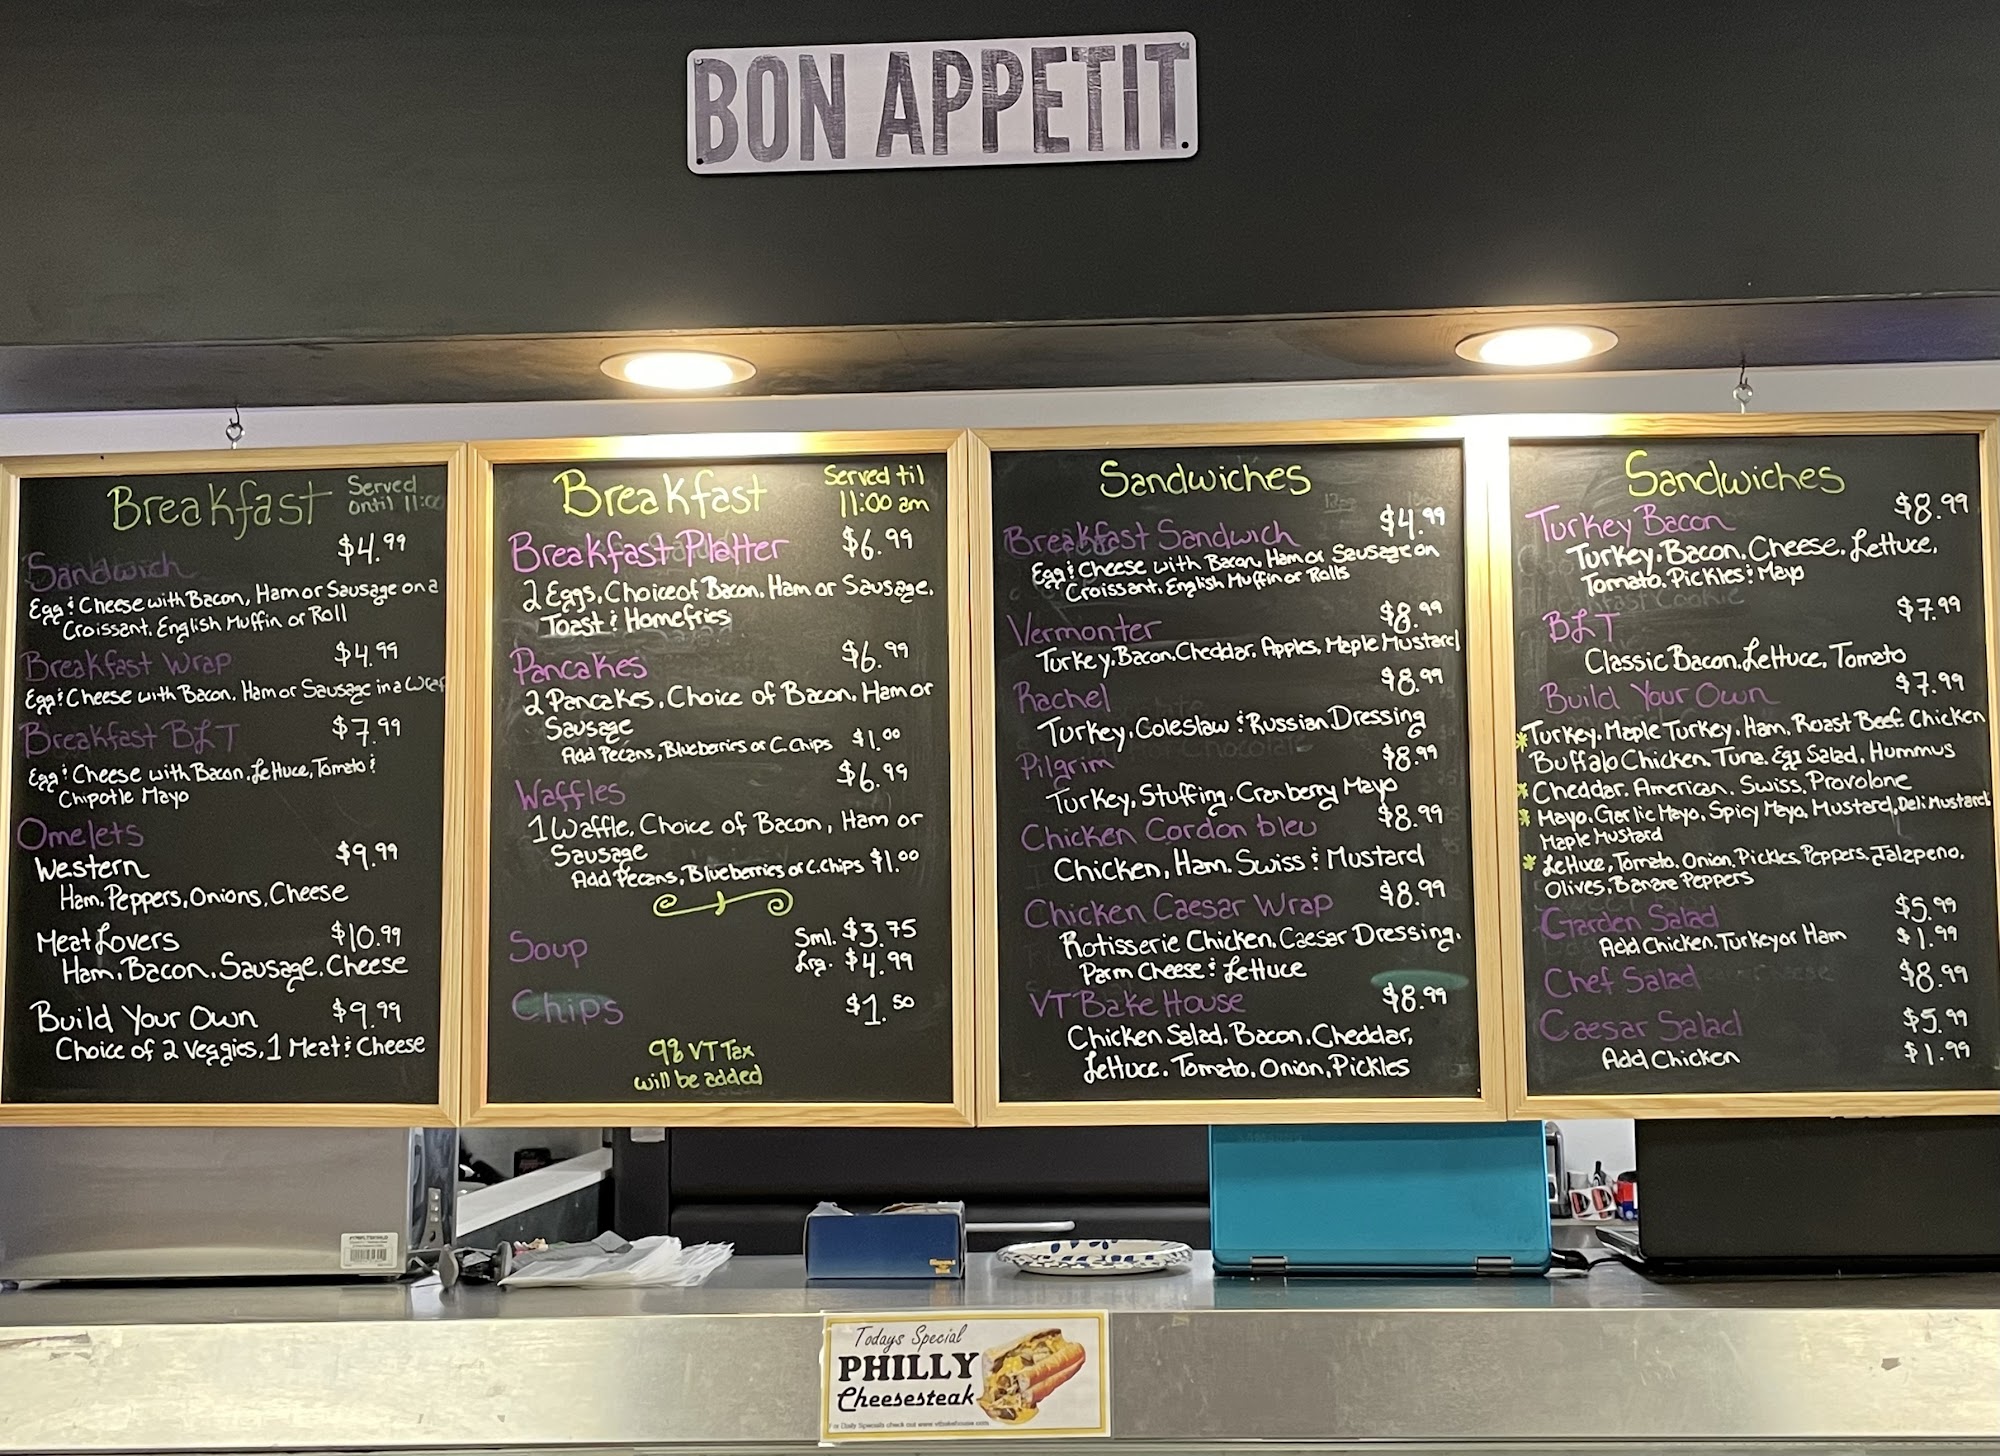 BON APPETIT.
Breakfast Served
until 11:00
Sandwich $4.99
Egg & Cheese with Bacon, Ham or Sausage on a
Croissant, English Muffin or Roll
Breakfast Wrap $4.99
Egg & Cheese with Bacon, Ham or Sausage in a Wrap
Breakfast BLT $7.99
Egg & Cheese with Bacon, Lettuce, Tomato &
Chipotle Mayo
Omelets
Western $9.99
Ham, Peppers, Onions, Cheese
Meat Lovers $10.99
Ham, Bacon, Sausage, Cheese
Build Your Own $9.99
Choice of 2 Veggies, 1 Meat & Cheese
Breakfast Served til
11:00 am
Breakfast Platter $6.99
2 Eggs, Choice of Bacon, Ham or Sausage,
Toast & Homefries
Pancakes $6.99
2 Pancakes, Choice of Bacon, Ham or
Sausage
Add Pecans, Blueberries or C. Chips $1.00
Waffles $6.99
1 Waffle, Choice of Bacon, Ham or
Sausage
Add Pecans, Blueberries or C. Chips $1.00
Soup Sml. $3.75
Lrg. $4.99
Chips $1.50
9% VT Tax
will be added
Sandwiches
Breakfast Sandwich $4.99
Egg & Cheese with Bacon, Ham or Sausage on
Croissant, English Muffin or Rolls
Vermonter $8.99
Turkey, Bacon, Cheddar, Apples, Maple Mustard
Rachel $8.99
Turkey, Coleslaw & Russian Dressing
Pilgrim $8.99
Turkey, Stuffing, Cranberry Mayo
Chicken Cordon bleu $8.99
Chicken, Ham, Swiss & Mustard
Chicken Caesar Wrap $8.99
Rotisserie Chicken, Caesar Dressing,
Parm Cheese & Lettuce
VT Bake House $8.99
Chicken Salad, Bacon, Cheddar,
Lettuce, Tomato, Onion, Pickles
Sandwiches
Turkey Bacon $8.99
Turkey, Bacon, Cheese, Lettuce,
Tomato, Pickles & Mayo
BLT $7.99
Classic Bacon, Lettuce, Tomato
Build Your Own $7.99
* Turkey, Maple Turkey, Ham, Roast Beef, Chicken
Buffalo Chicken, Tuna, Egg Salad, Hummus
* Cheddar, American, Swiss, Provolone
* Mayo, Garlic Mayo, Spicy Mayo, Mustard, Deli Mustard
Maple Mustard
* Lettuce, Tomato, Onion, Pickles, Peppers, Jalapeno,
Olives, Banana Peppers
Garden Salad $5.99
Add Chicken, Turkey or Ham $1.99
Chef Salad $8.99
Caesar Salad $5.99
Add Chicken $1.99
Todays Special
PHILLY
Cheesesteak
For Daily Specials check out www.vtbakehouse.com